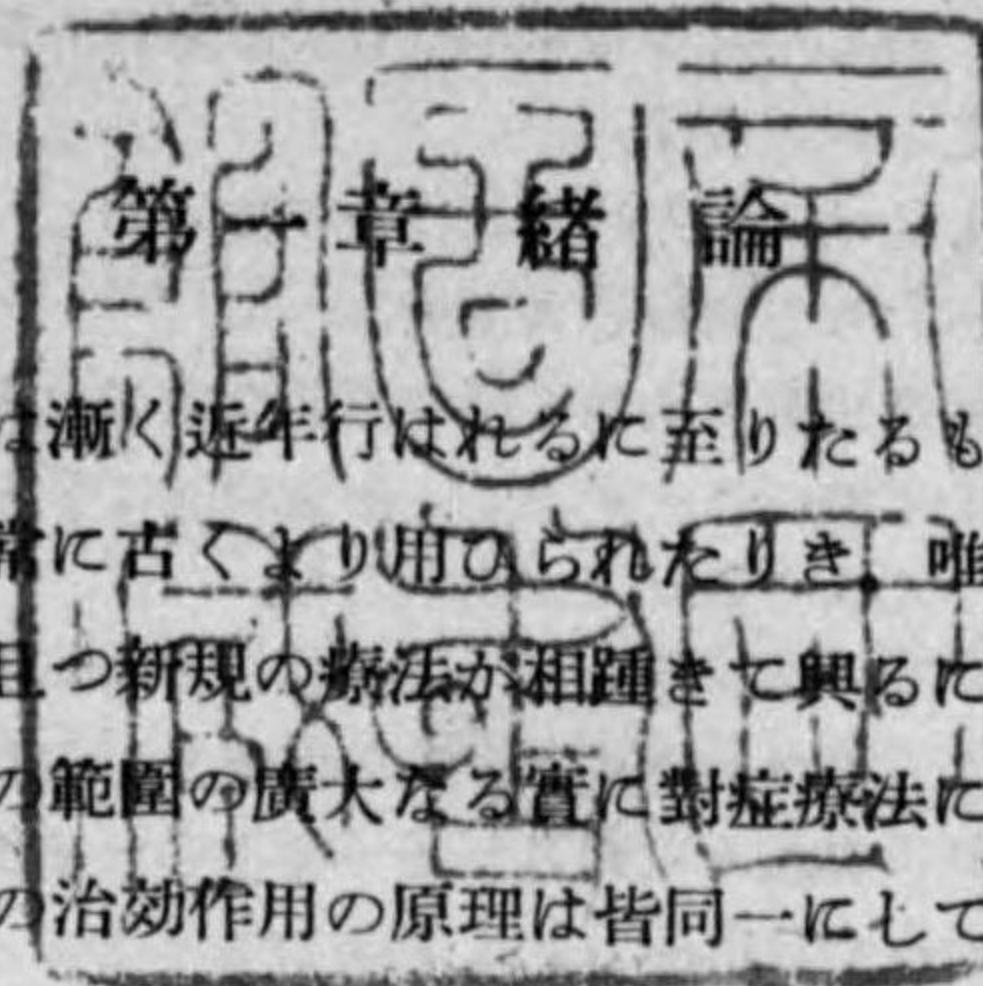 第一章 緒論
は漸く近年行はれるに至りたるも
常に古くより用ひられたりき 唯
且つ新規の療法が相踵きて興るに
の範圍の廣大なる實に對症療法に
の治効作用の原理は皆同一にして